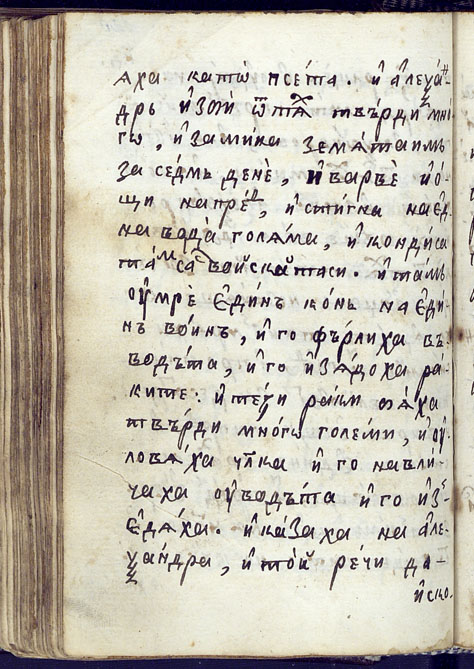 ꙗха катѡ псета. и҆ а҆леѯа́н
дрь и҆зби́ ѿтѧ́х твърди мнѡ́
гѡ, и҆ замина земѧ́таимь
за се́дмь денѐ, и҆ варвѐ и҆ о҆́
щи напре́д, и҆ стигна на е҆д
на вода̀ голѧма, и҆ кондиса
та́м сас воискаѧтаси. и҆ та́мь
оу҆мрѐ е҆ди́нь ко́нь на е҆ди
нь во́инь, и҆ го фъ́рлиха въ
водъ́та, и҆ го и҆зꙗ́доха ра́
ките. и҆ те́ꙁи раки бѧ́ха
твъ́рди мно́гѡ големи, и҆ оу҆
ловѧ́ха чл҃ка и҆ го навли́
чаха оу҆ водъ́та и҆ го и҆з
е҆дѧ́ха. и҆ ка́заха на а҆ле
ѯандра, и҆ то́й ре́чи да
и҆ско.